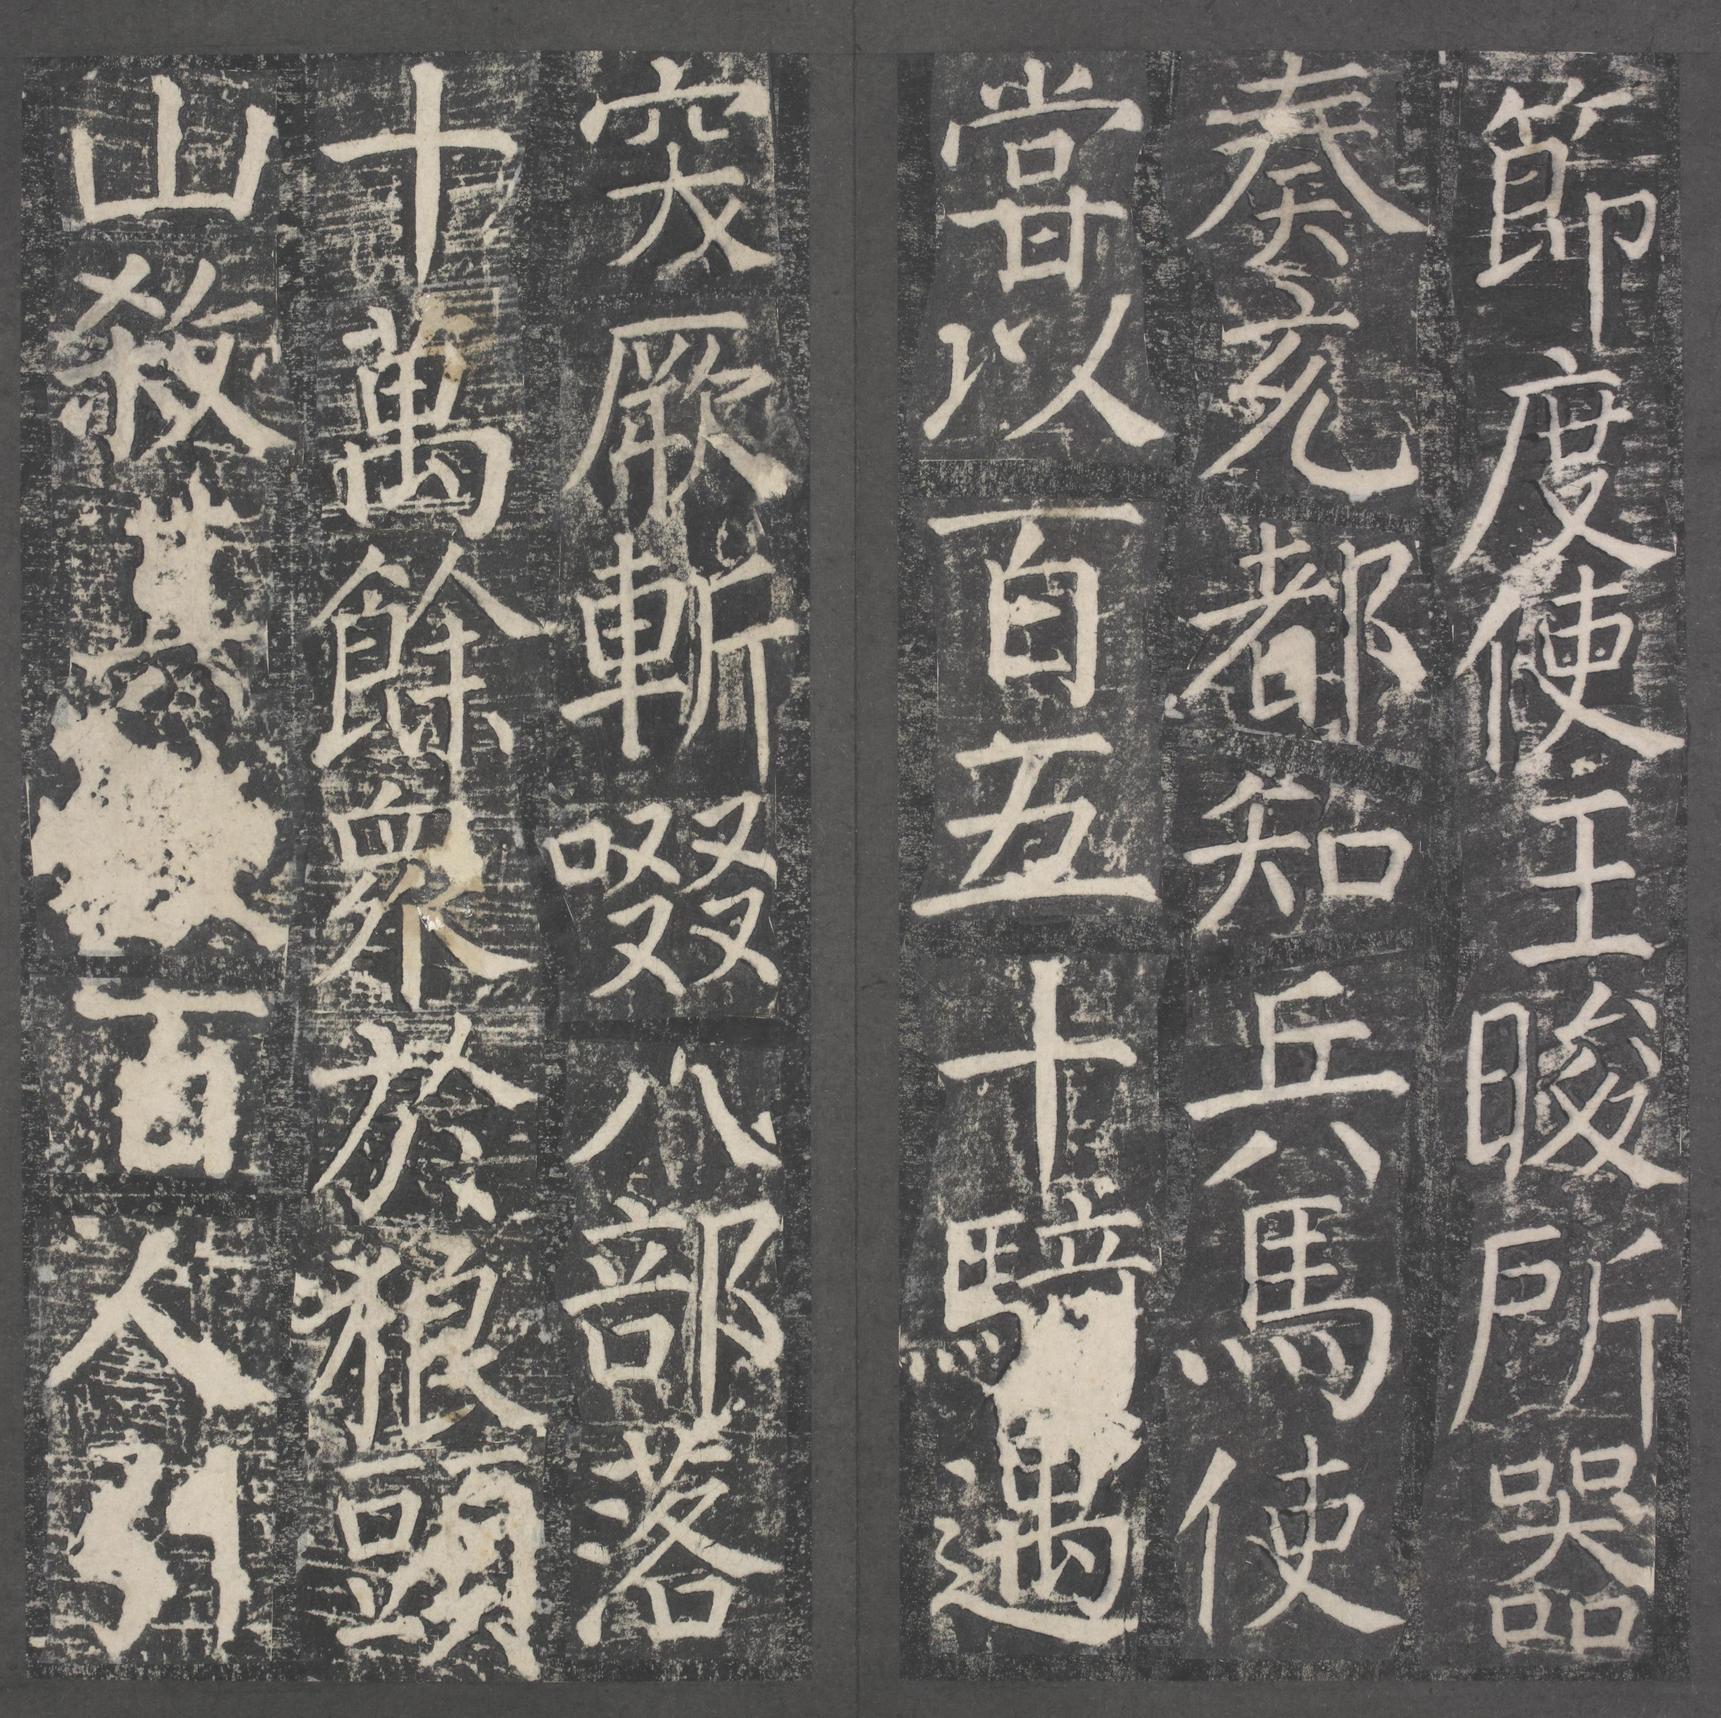 節度使王晙所器
奏充都知兵馬使
甞以百五十騎遇
突厥斬啜八部落
十萬餘衆於狼頭
山殺其數百人引